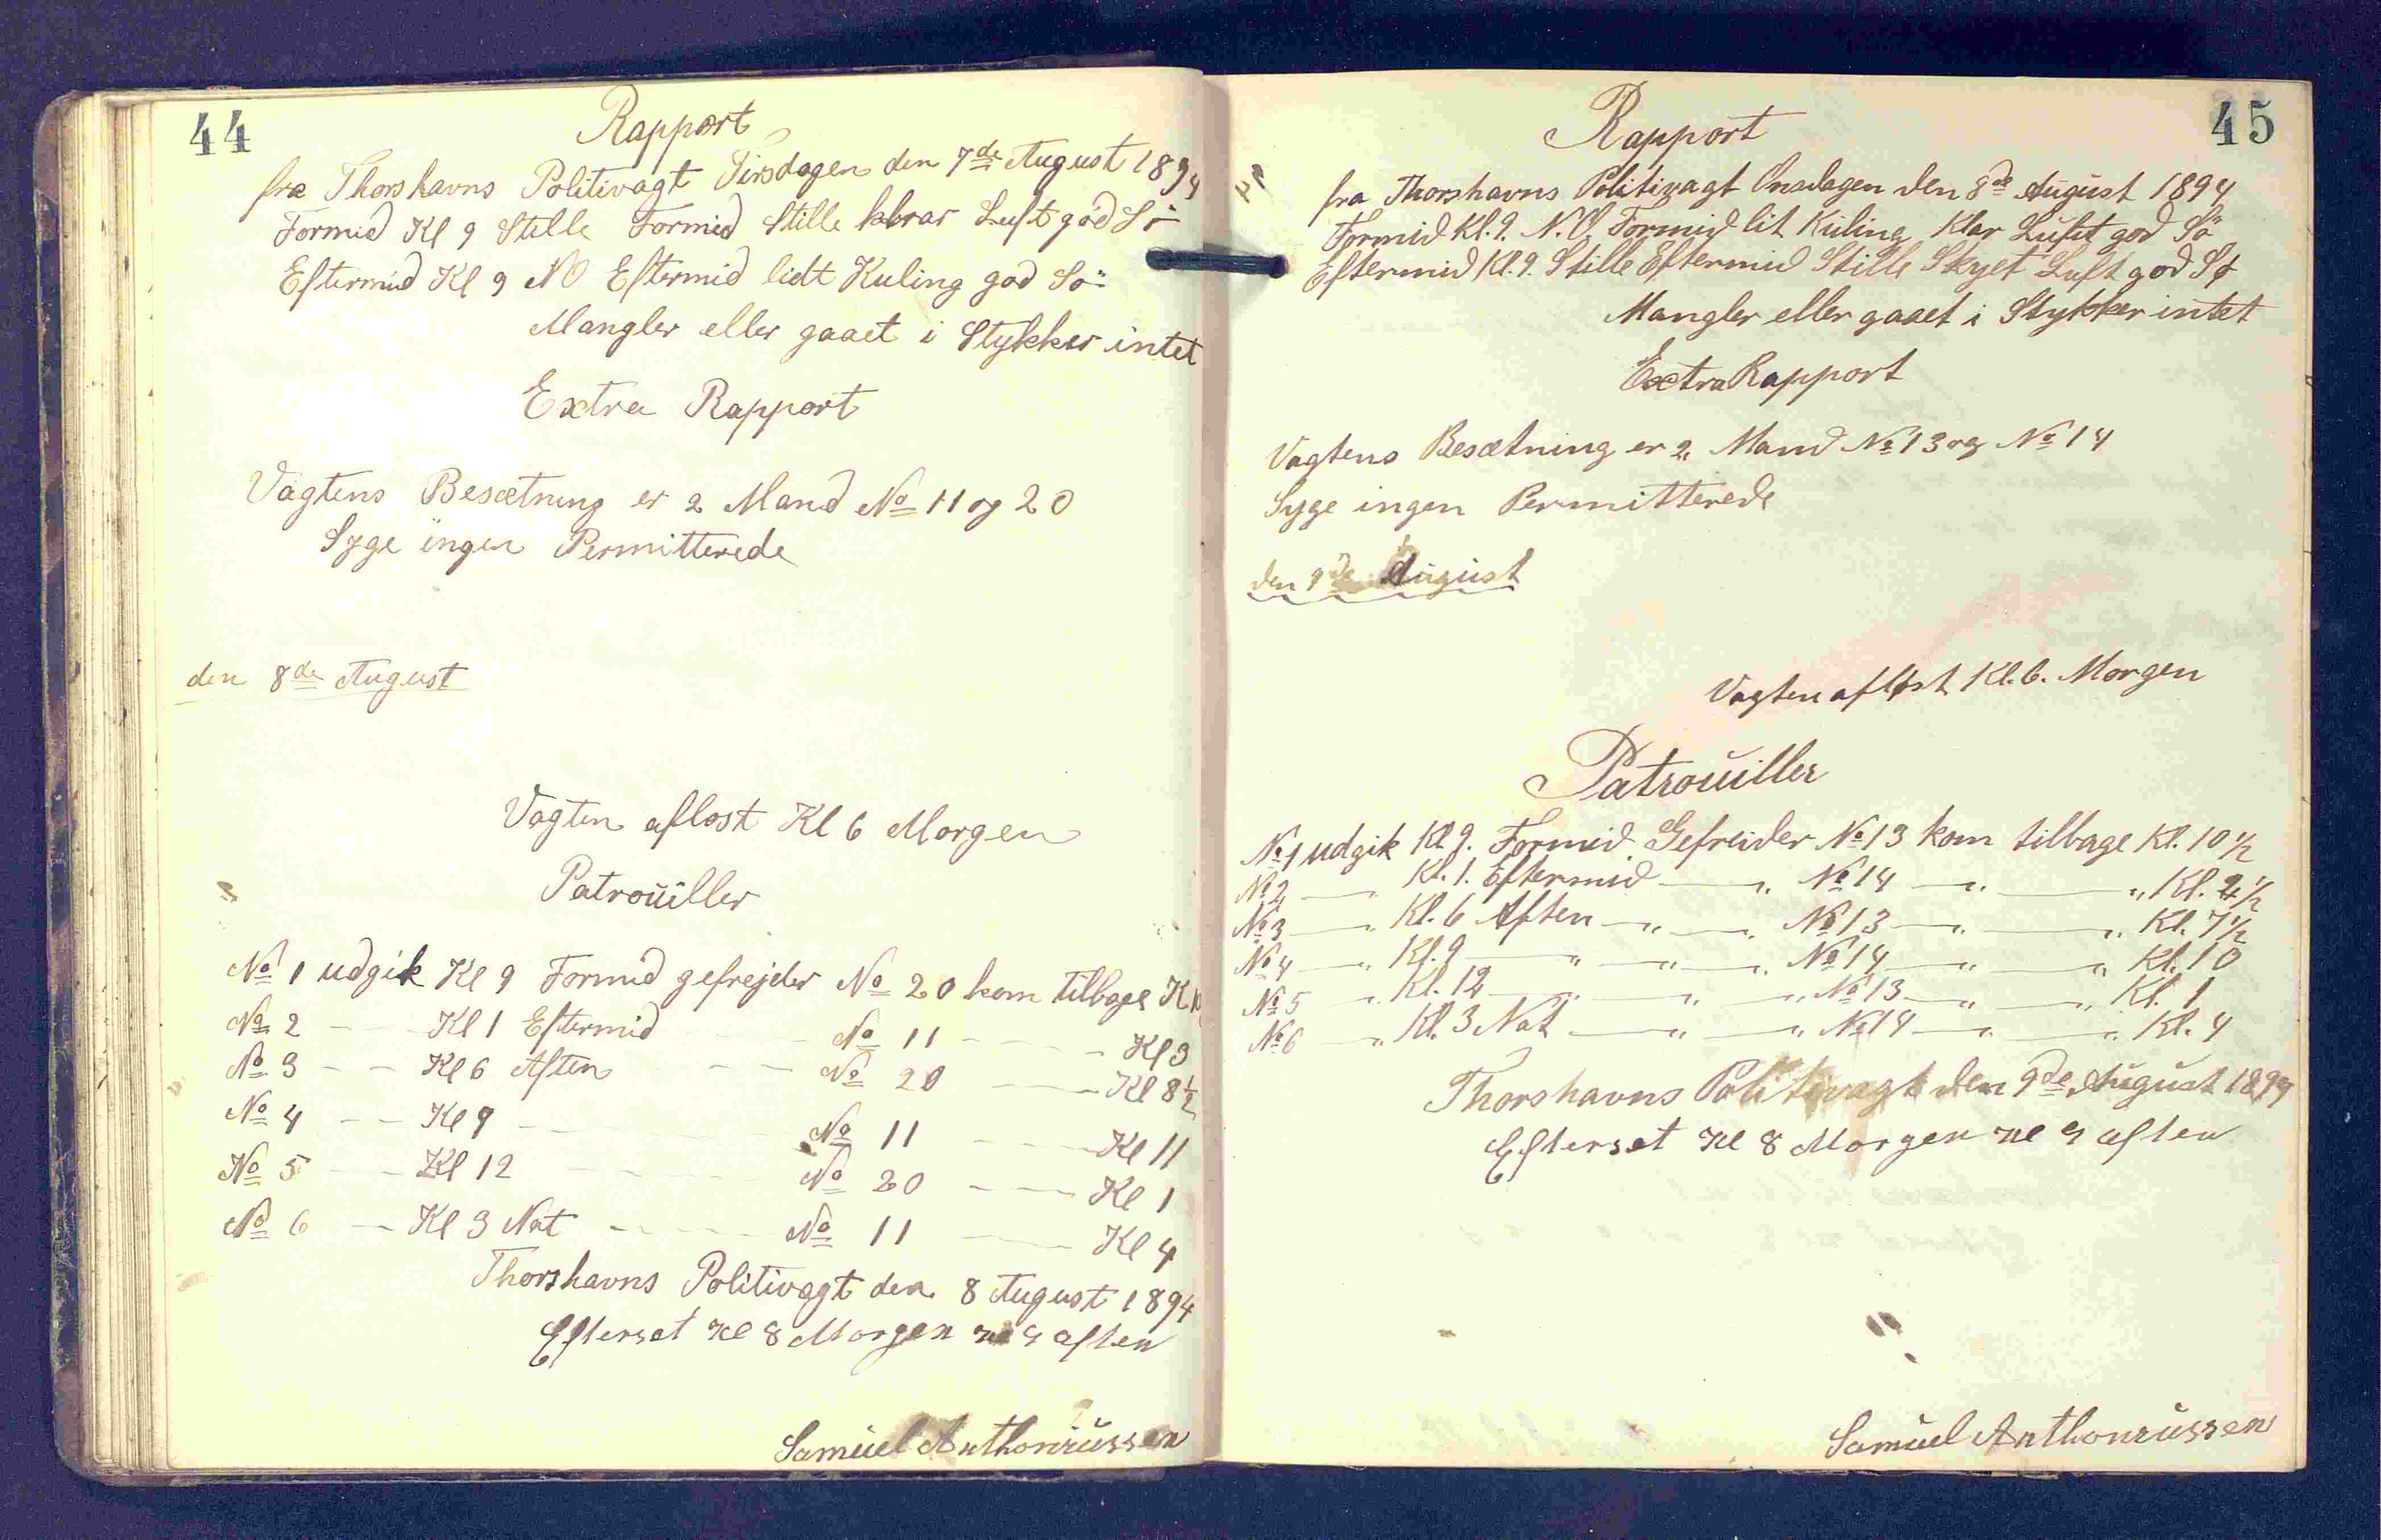 44
Rapport
fra Thorshavns Politivagt Tirsdagen den 7de August 1894
Formid Kl 9 Stille Formid Stille klar Luft god Sö
Eftermid Kl 9 NO Eftermid lidt Kuling god Sö
Mangler eller gaaet i Stykker intet
Extra Rapport
Vagtens Besætning er 2 Mand No 11 og 20
Syge ingen Permitterede
den 8de August
Vagten aflöst Kl 6 Morgen
Patrouiller
No 1 udgik Kl 9 Formid gefrejder No 20 kom tilbage Kl
No 2 — Kl 1 Eftermid — No 11 — Kl 3
No 3 — — Kl 6 Aften — — No 20 — Kl 8½
No 4 — — Kl 9 — No 11 — Kl 11
No 5 — Kl 12 — — No 20 — Kl 1
No 6 — Kl 3 Nat — No 11 — Kl 4
Thorshavns Politivagt den 8 August 1894
Efterset Kl 8 Morgen Kl 9 aften
Samuel Anthoniussen
45
Rapport
fra Thorshavns Politivagt Onsdagen den 8de August 1894
Formid Kl. 9. N.O. Formid lit Kuling Klar Luft god Sö
Eftermid Kl. 9. Stille Eftermid Stille Skyet Luft god Sø
Mangler eller gaaet i Stykker intet
Extra Rapport
Vagtens Besætning er 2 Mand No 13 og No 14
Syge ingen Permitterede
den 9de August
Vagten afløst Kl. 6. Morgen
Patrouiller
No 1 udgik Kl 9. Formid Gefreider No 13 kom tilbage Kl. 10½
No 2 — " Kl. 1. Eftermid — " No 14 — " — " Kl. 2½
No 3 — " Kl. 6 Aften — " — " No 13 — " — " Kl. 7½
No 4 — " Kl. 9 — " — " — " No 14 — " — " Kl. 10
No 5 — " Kl. 12 — " — " — " No 13 — " — " Kl. 1
No 6 — " Kl. 3 Nat — " — " No 14 — " — " Kl. 4
Thorshavns Politivagt den 9de August 1894
Efterset Kl 8 Morgen Kl 9 aften
Samuel Anthoniussen